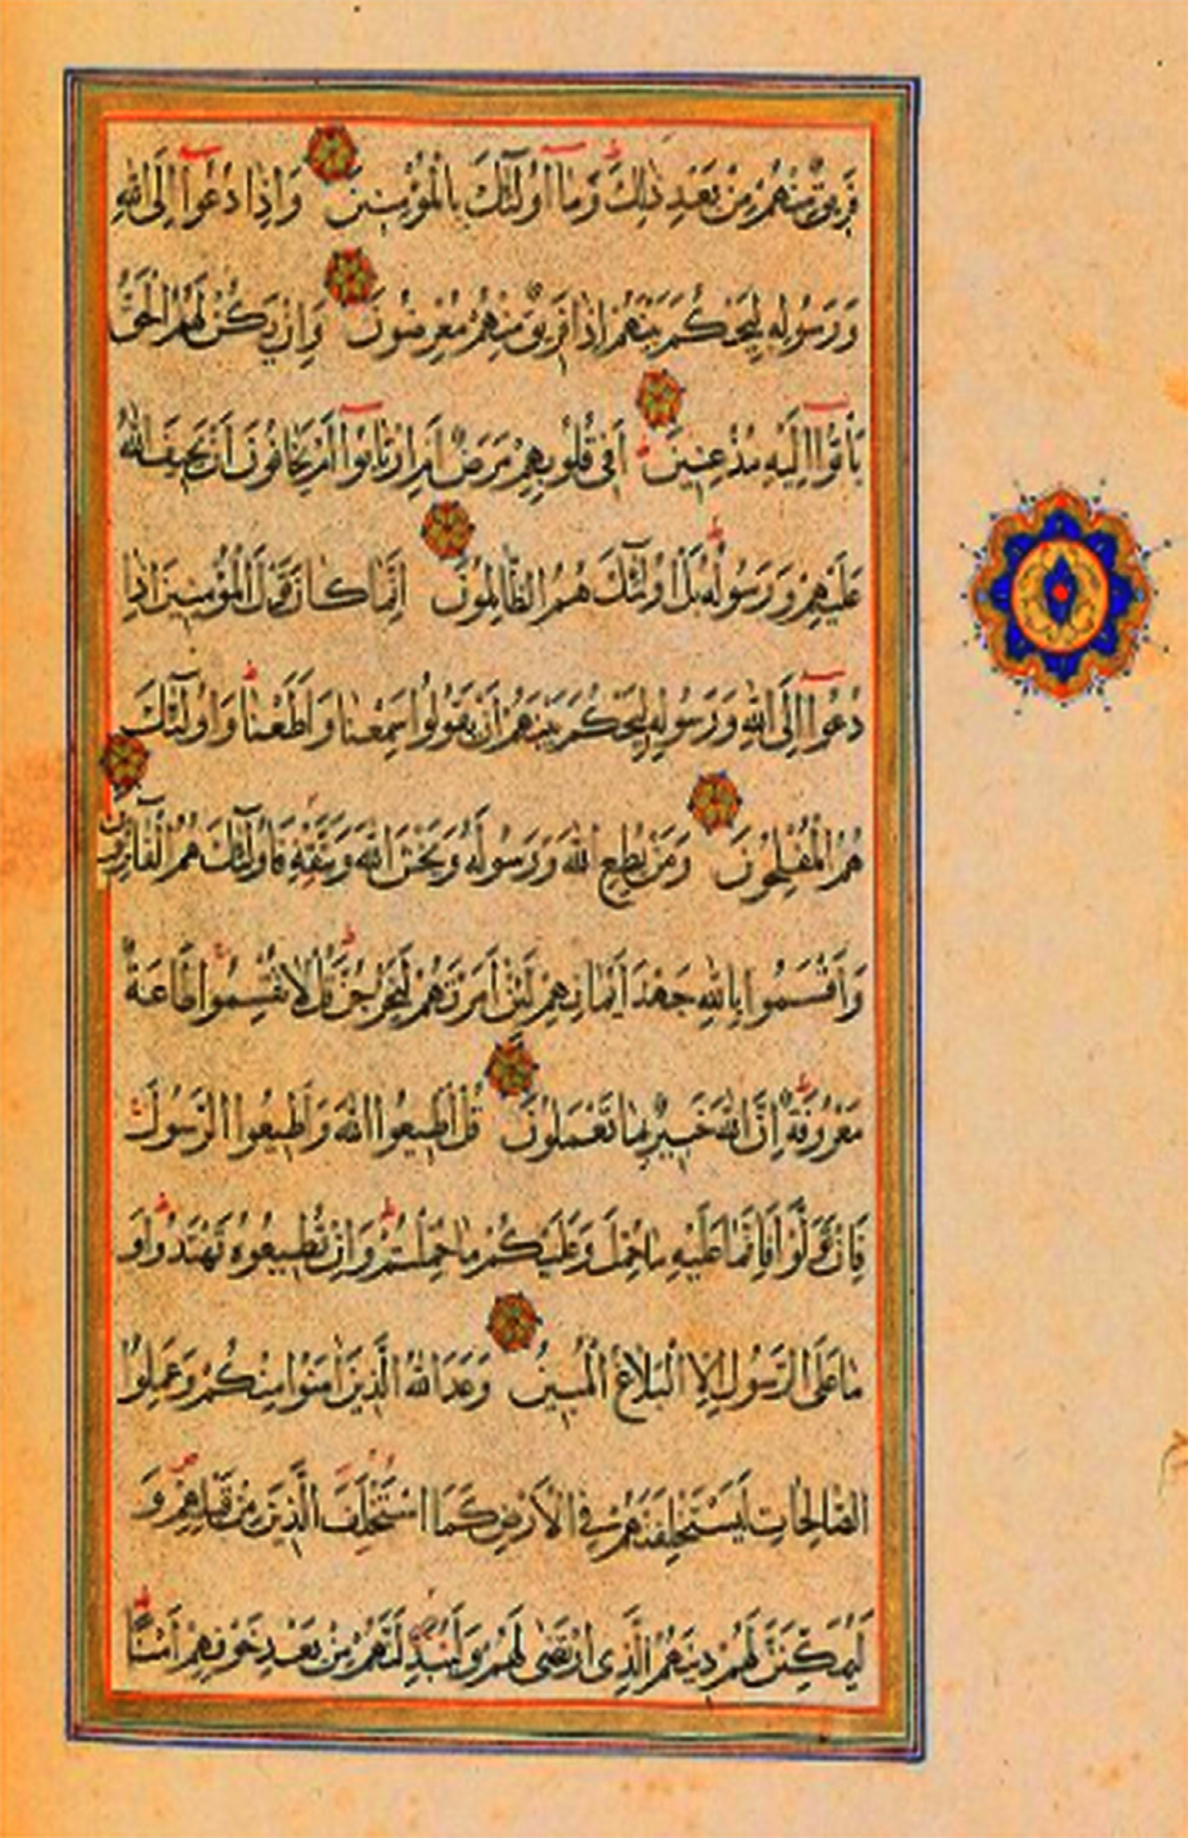 فَرِيقٌ مِنْهُمْ مِنْ بَعْدِ ذٰلِكَ وَمَٓا اُو۬لٰٓئِكَ بِالْمُؤْمِنِينَ وَاِذَا دُعُٓوا اِلَى اللّٰهِ
وَرَسُولِهِ لِيَحْكُمَ بَيْنَهُمْ اِذَا فَرِيقٌ مِنْهُمْ مُعْرِضُونَ وَاِنْ يَكُنْ لَهُمُ الْحَقُّ
يَأْتُٓوا اِلَيْهِ مُذْعِنِينَ اَفِى قُلُوبِهِمْ مَرَضٌ اَمِ ارْتَابُٓوا اَمْ يَخَافُونَ اَنْ يَحِيفَ اللّٰهُ
عَلَيْهِمْ وَرَسُولُهُ بَلْ اُولٰٓئِكَ هُمُ الظَّالِمُونَ اِنَّمَا كَانَ قَوْلَ الْمُؤْمِنِينَ اِذَا
دُعُٓوا اِلَى اللّٰهِ وَرَسُولِهِ لِيَحْكُمَ بَيْنَهُمْ اَنْ يَقُولُوا سَمِعْنَا وَاَطَعْنَا وَاُولٰٓئِكَ
هُمُ الْمُفْلِحُونَ وَمَنْ يُطِعِ اللّٰهَ وَرَسُولَهُ وَيَخْشَ اللّٰهَ وَيَتَّقْهِ فَاُولٰٓئِكَ هُمُ الْفَٓائِزُونَ
وَاَقْسَمُوا بِاللّٰهِ جَهْدَ اَيْمَانِهِمْ لَئِنْ اَمَرْتَهُمْ لَيَخْرُجُنَّ قُلْ لَا تُقْسِمُوا طَاعَةٌ
مَعْرُوفَةٌ اِنَّ اللّٰهَ خَبِيرٌ بِمَا تَعْمَلُونَ قُلْ اَطِيعُوا اللّٰهَ وَاَطِيعُوا الرَّسُولَ
فَاِنْ تَوَلَّوْا فَاِنَّمَا عَلَيْهِ مَا حُمِّلَ وَعَلَيْكُمْ مَا حُمِّلْتُمْ وَاِنْ تُطِيعُوهُ تَهْتَدُوا وَ
مَا عَلَى الرَّسُولِ اِلَّا الْبَلَاغُ الْمُبِينُ وَعَدَ اللّٰهُ الَّذِينَ اٰمَنُوا مِنْكُمْ وَعَمِلُوا
الصَّالِحَاتِ لَيَسْتَخْلِفَنَّهُمْ فِى الْاَرْضِ كَمَا اسْتَخْلَفَ الَّذِينَ مِنْ قَبْلِهِمْ وَ
لَيُمَكِّنَنَّ لَهُمْ دِينَهُمُ الَّذِى ارْتَضٰى لَهُمْ وَلَيُبَدِّلَنَّهُمْ مِنْ بَعْدِ خَوْفِهِمْ اَمْنًا